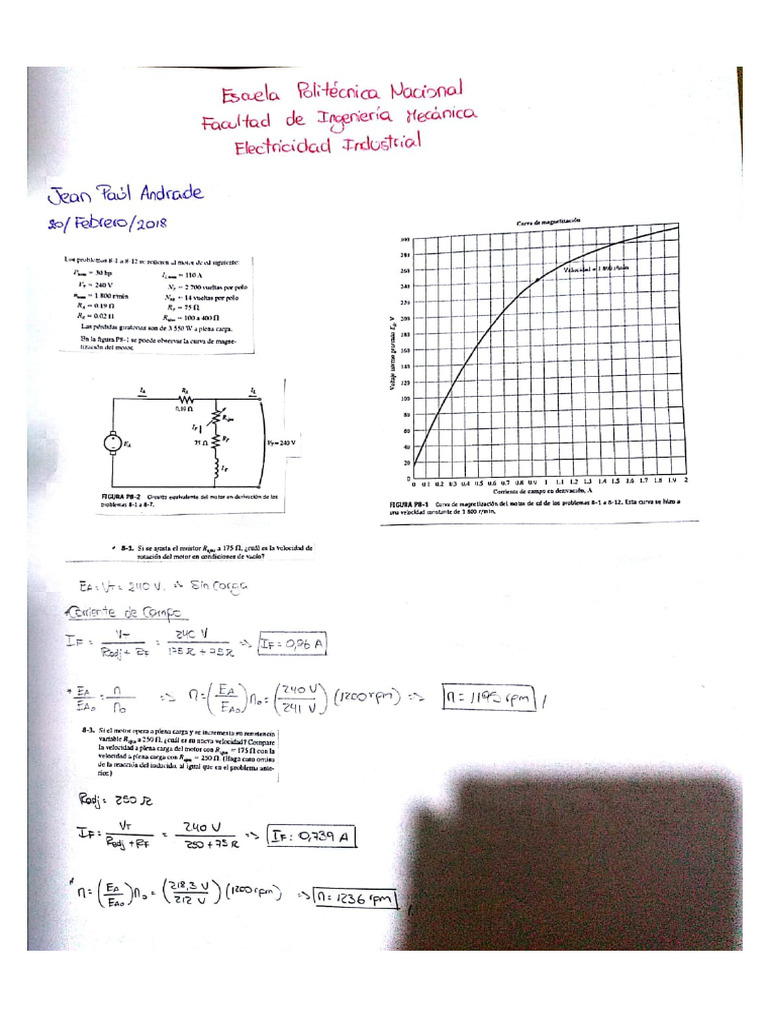 Escuela Politécnica Nacional
Facultad de Ingeniería Mecánica
Electricidad Industrial
Jean Paúl Andrade
20/Febrero/2018
Los problemas 8-1 a 8-12 se refieren al motor de cd siguiente:
P = 30 hp
I = 110 A
V_T = 240 V
N_F = 2 700 vueltas por polo
n = 1 800 r/min
N_SE = 14 vueltas por polo
R_A = 0.19 Ω
R_F = 75 Ω
R_S = 0.02 Ω
R_ajus = 100 a 400 Ω
Las pérdidas giratorias son de 3 550 W a plena carga.
En la figura P8-1 se puede observar la curva de magne-
tización del motor.
Curva de magnetización
Velocidad = 1 800 r/min
Voltaje interno generado E_A, V
300
280
260
240
220
200
180
160
140
120
100
80
60
40
20
0
0 0.1 0.2 0.3 0.4 0.5 0.6 0.7 0.8 0.9 1 1.1 1.2 1.3 1.4 1.5 1.6 1.7 1.8 1.9 2
Corriente de campo en derivación, A
FIGURA P8-1 Curva de magnetización del motor de cd de los problemas 8-1 a 8-12. Esta curva se hizo a
una velocidad constante de 1 800 r/min.
I_A
R_A
I_L
0.19 Ω
R_ajus
I_F
75 Ω
R_F
E_A
V_T = 240 V
L_F
FIGURA P8-2 Circuito equivalente del motor en derivación de los
problemas 8-1 a 8-7.
8-1. Si se ajusta el resistor R_ajus a 175 Ω, ¿cuál es la velocidad de
rotación del motor en condiciones de vacío?
E_A = V_T = 240 V. ∴ Sin Carga
Corriente de Campo
I_F = V_T / (Radj + R_F) = 240 V / (175 Ω + 75 Ω) => I_F = 0,96 A
* E_A / E_Ao = n / n_o => n = (E_A / E_Ao) n_o = (240 V / 241 V) (1200 rpm) => n = 1195 rpm
8-3. Si el motor opera a plena carga y se incrementa su resistencia
variable R_ajus a 250 Ω, ¿cuál es su nueva velocidad? Compare
la velocidad a plena carga del motor con R_ajus = 175 Ω con la
velocidad a plena carga con R_ajus = 250 Ω. (Haga caso omiso
de la reacción del inducido, al igual que en el problema ante-
rior.)
Radj = 250 Ω
I_F = V_T / (Radj + R_F) = 240 V / (250 + 75 Ω) => I_F = 0,739 A
* n = (E_A / E_Ao) n_o = (218,3 V / 212 V) (1200 rpm) => n = 1236 rpm